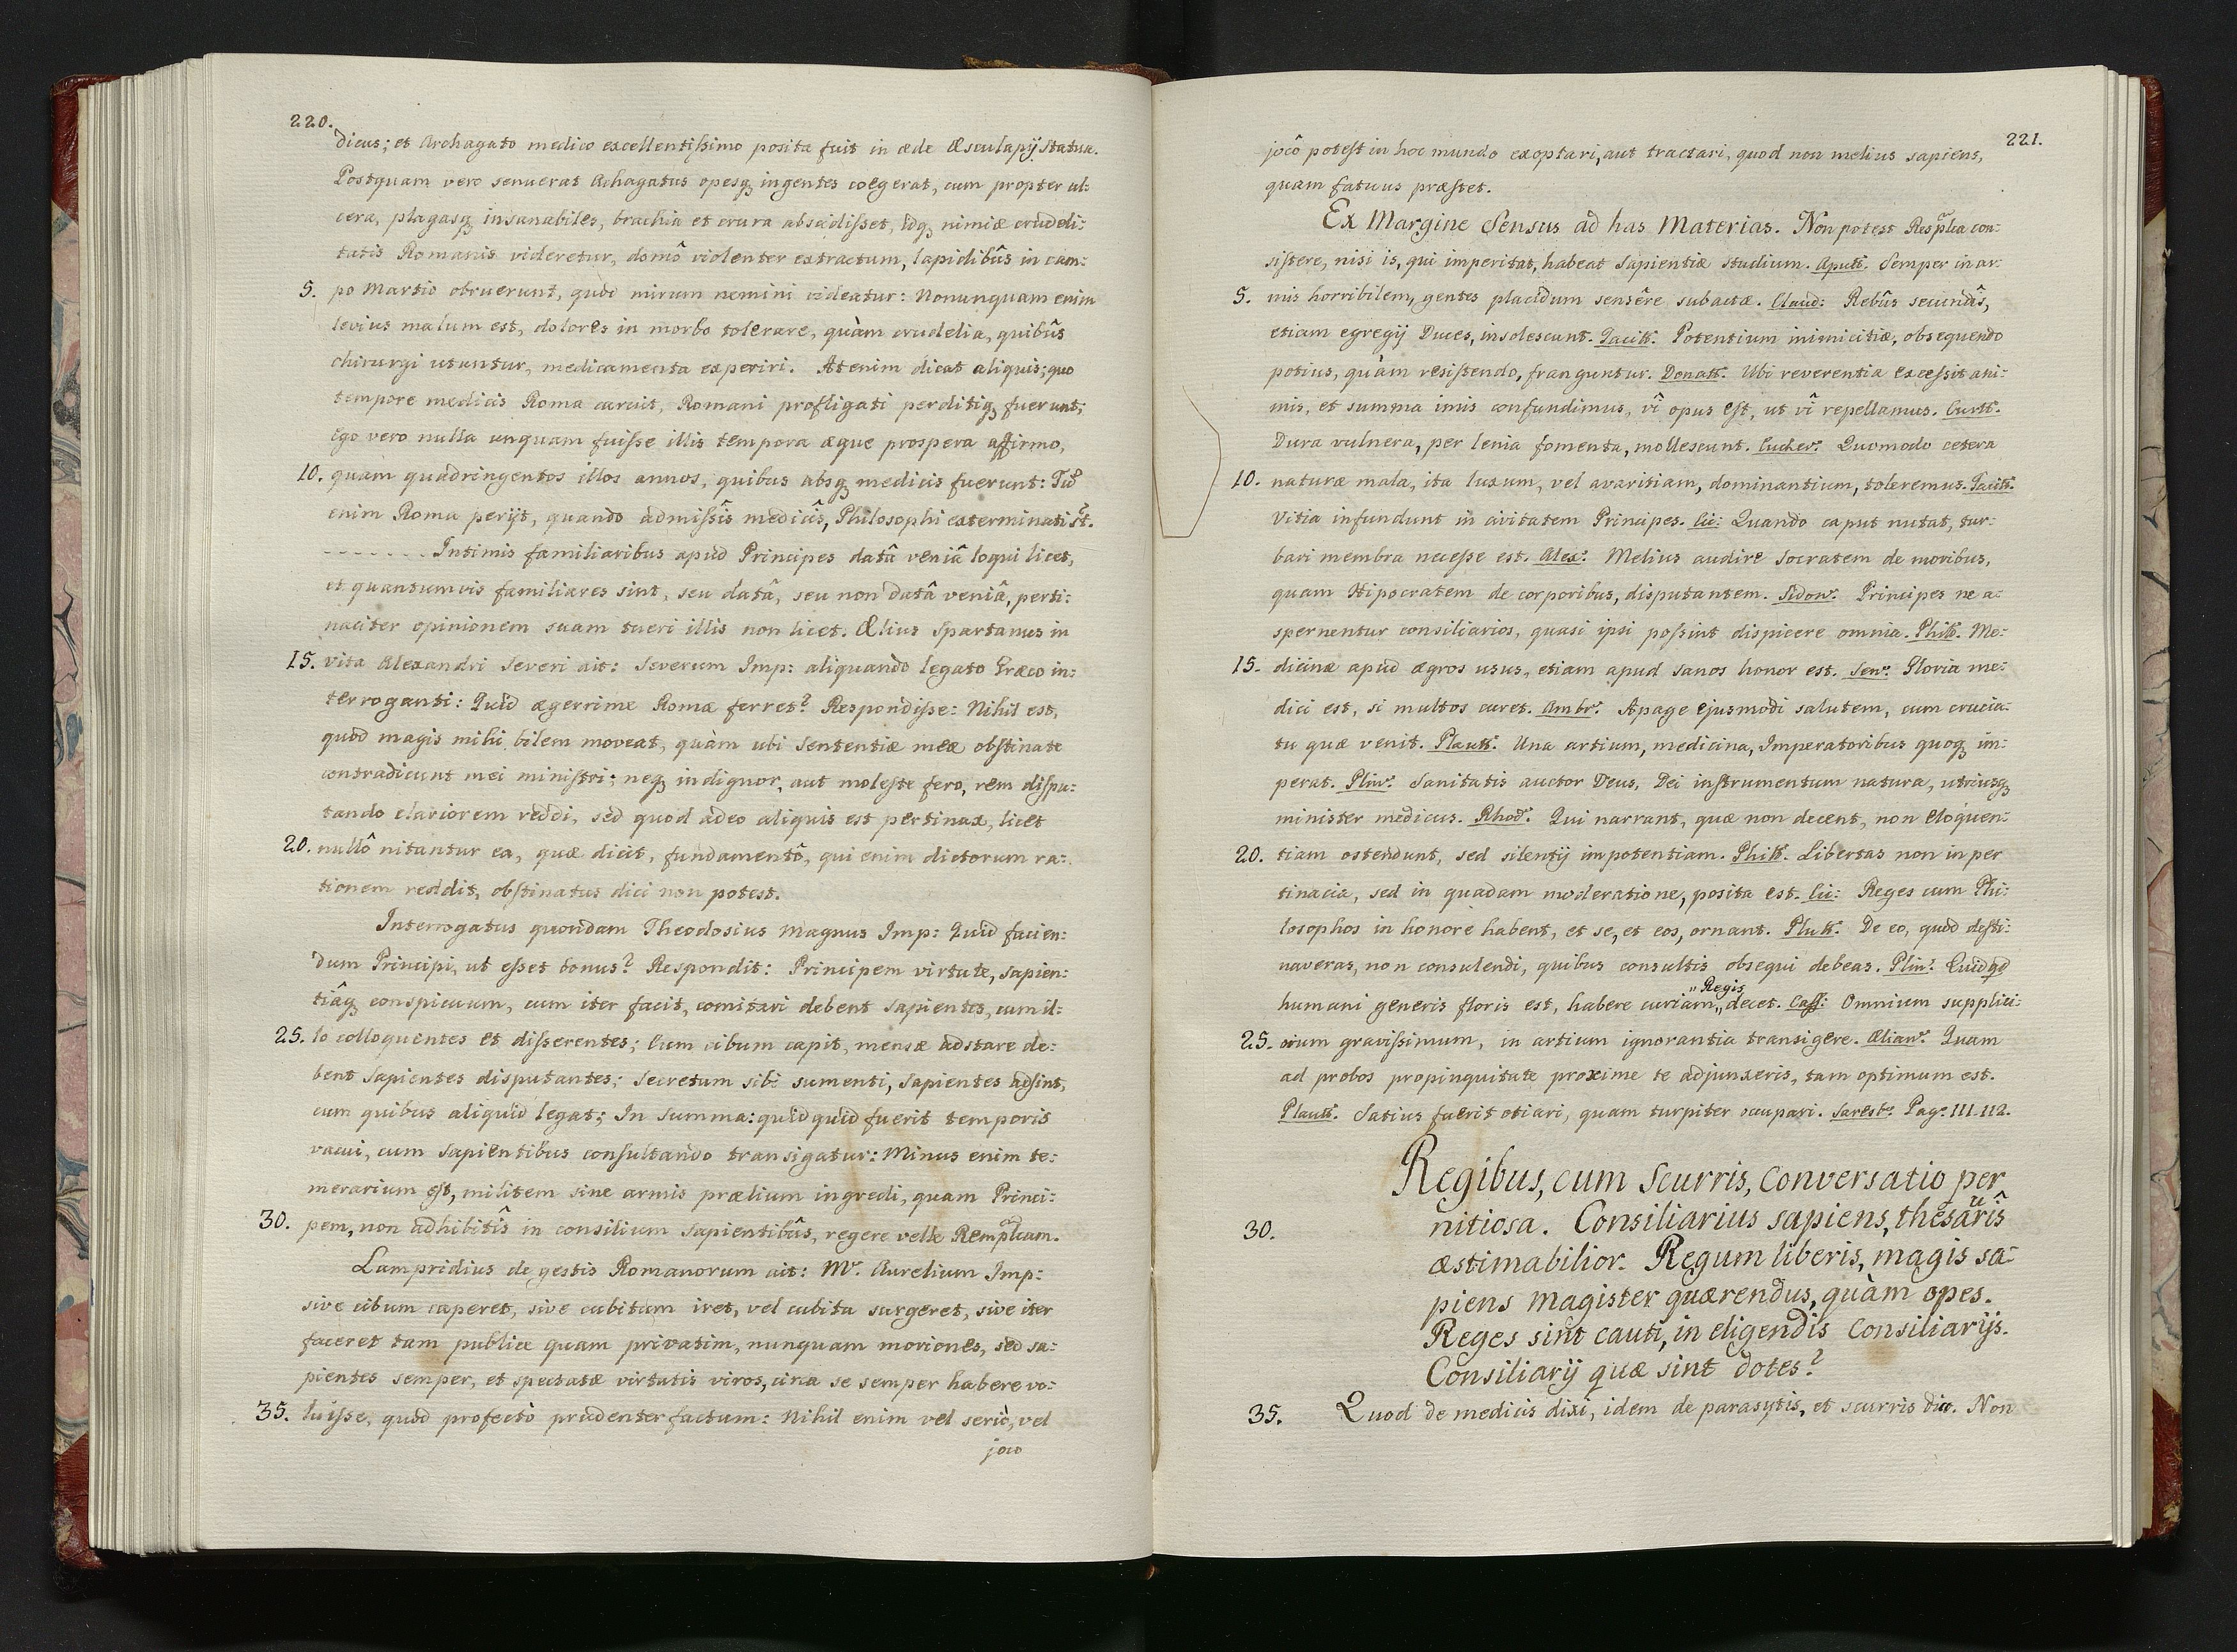 220.
dicus; et Archagato medico excellentissimo posita fuit in æde Æsculapij statua.
Postquam vero senuerat Achagatus opesq; ingentes coegerat, cum propter ul:
cera, plagasq; insanabiles, brachia et crura abscidisset, idq; nimiæ crudeli:
tatis Romanis videretur, domô violenter extractum, lapidibûs in cam:
5. po Martio obruerunt, quod mirum nemini videatur: Nonunquam enim
levius malum est, dolores in morbo tolerare, quàm crudelia, quibûs
chirurgi utuntur, medicamenta experiri. At enim dicat aliquis; quo
tempore medicis Roma caruit, Romani profligati perditiq; fuerunt;
Ego vero nulla unquam fuisse illis tempora æque prospera affirmo,
10. quam quadringentos illos annos, quibus absq; medicis fuerunt: Tūc
enim Roma perijt, quando admissîs medicîs, Philosophi exterminati st̃.
- - - - - - - Intimis familiaribus apud Principes datâ veniâ loqui licet,
et quantumvis familiares sint, seu datâ, seu non datâ veniâ, perti:
naciter opinionem suam tueri illis non licet. Ælius Spartanus in
15. vita Alexandri Severi ait: Severum Imp: aliquando legato Græco in:
terroganti: Quid ægerrime Romæ ferret? Respondisse: Nihil est,
quod magis mihi bilem moveat, quàm ubi Sententiæ meæ obstinate
contradicunt mei ministri; neq; indignor, aut moleste fero, rem dispu:
tando clariorem reddi, sed quod adeo aliquis est pertinax, licet
20. nullô nitantur ea, quæ dicit, fundamentô, qui enim dictorum ra:
tionem reddit, obstinatus dici non potest.
Interrogatus quondam Theodosius Magnus Imp: Quid facien:
dum Principi, ut esset bonus? Respondit: Principem virtute, sapien:
tiâq; conspicuum, cum iter facit, comitari debent Sapientes, cum il:
25. lo colloquentes et disserentes; Cum cibum capit, mensæ adstare de:
bent Sapientes disputantes; Secretum sibi sumenti, Sapientes adsint,
cum quibus aliquid legat; In Summa: quidquid fuerit temporis
vacui, cum Sapientibus consultando transigatur: Minus enim te:
merarium est, militem sine armis prælium ingredi, quam Princi:
30. pem, non adhibitîs in consilium Sapientibûs, regere velle Rempl̃cam.
Lampridius de gestis Romanorum ait: Mr. Aurelium Imp:
sive cibum caperet, sive cubitum iret, vel cubitu surgeret, sive iter
faceret tam publice quam privatim, nunquam moriones, sed sa:
pientes semper, et spectatæ virtutis viros, circa se semper habere vo:
35. luisse, quod profectò prudenter factum: Nihil enim vel seriò, vel
joco
221.
jocô potest in hoc mundo exoptari, aut tractari, quod non melius sapiens,
quam fatuus præstet.
Ex Margine Sensus ad has Materias. Non potest Respl̃ca con:
sistere, nisi is, qui imperitat, habeat Sapientiæ studium. Aputt. Semper in ar:
5. mis horribilem, gentes placidum sensêre subactæ. Claud: Rebûs secundîs,
etiam egregij Duces, insolescunt. Tacitt. Potentium inimicitiæ, obsequendo
potius, quàm resistendo, franguntur. Donatt. Ubi reverentia excessit ani:
mis, et summa imis confundimus, vî opus est, ut vî repellamus. Curtt.
Dura vulnera, per lenia fomenta, mollescunt. Eucher. Quomodo cetera
10. naturæ mala, ita luxum, vel avaritiam, dominantium, toleremus. Tacitt.
Vitia infundunt in civitatem Principes. Cic: Quando caput nutat, tur:
bari membra necesse est. Alex. Melius audire Socratem de moribus,
quam Hipocratem de corporibus, disputantem. Sidon. Principes ne a:
spernentur consiliarios, quasi ipsi possint dispicere omnia. Philtt. Me:
15. dicinæ apud ægros usus, etiam apud Sanos honor est. Sen. Gloria me:
dici est, si multos curet. Ambr. Apage ejusmodi salutem, cum crucia:
tu quæ venit. Plautt. Una artium, medicina, Imperatoribus quoq; im:
perat. Plin. Sanitatis auctor Deus, Dei instrumentum natura, utriusq;
minister medicus. Rhod. Qui narrant, quæ non decent, non eloquen:
20. tiam ostendunt, sed silentij impotentiam. Philtt. Libertas non in per
tinacia, sed in quadam moderatione, posita est. Cic: Reges cum Phi:
losophos in honore habent, et se, et eos, ornant. Plutt. De eo, quod desti:
naveras, non consulendi, quibus consultis obsequi debeas. Plin. Quidqd
humani generis floris est, habere curiam „Regis„ decet. Cass: Omnium supplici:
25. orum gravissimum, in artium ignorantia transigere. Ælian. Quam
ad probos propinquitate proxime te adjunxeris, tam optimum est.
Plautt. Satius fuerit otiari, quam turpiter occupari. Sarest. Pag. 111-112.
Regibus, cum Scurris, Conversatio per
30. nitiosa. Consiliarius sapiens, thesaurîs
æstimabilior. Regum liberis, magis sa:
piens Magister quærendus, quàm opes.
Reges sint cauti, in eligendis Consiliarijs.
Consiliarij quæ sint dotes?
35. Quod de medicis dixi, idem de parasytis, et scurris dico. Non